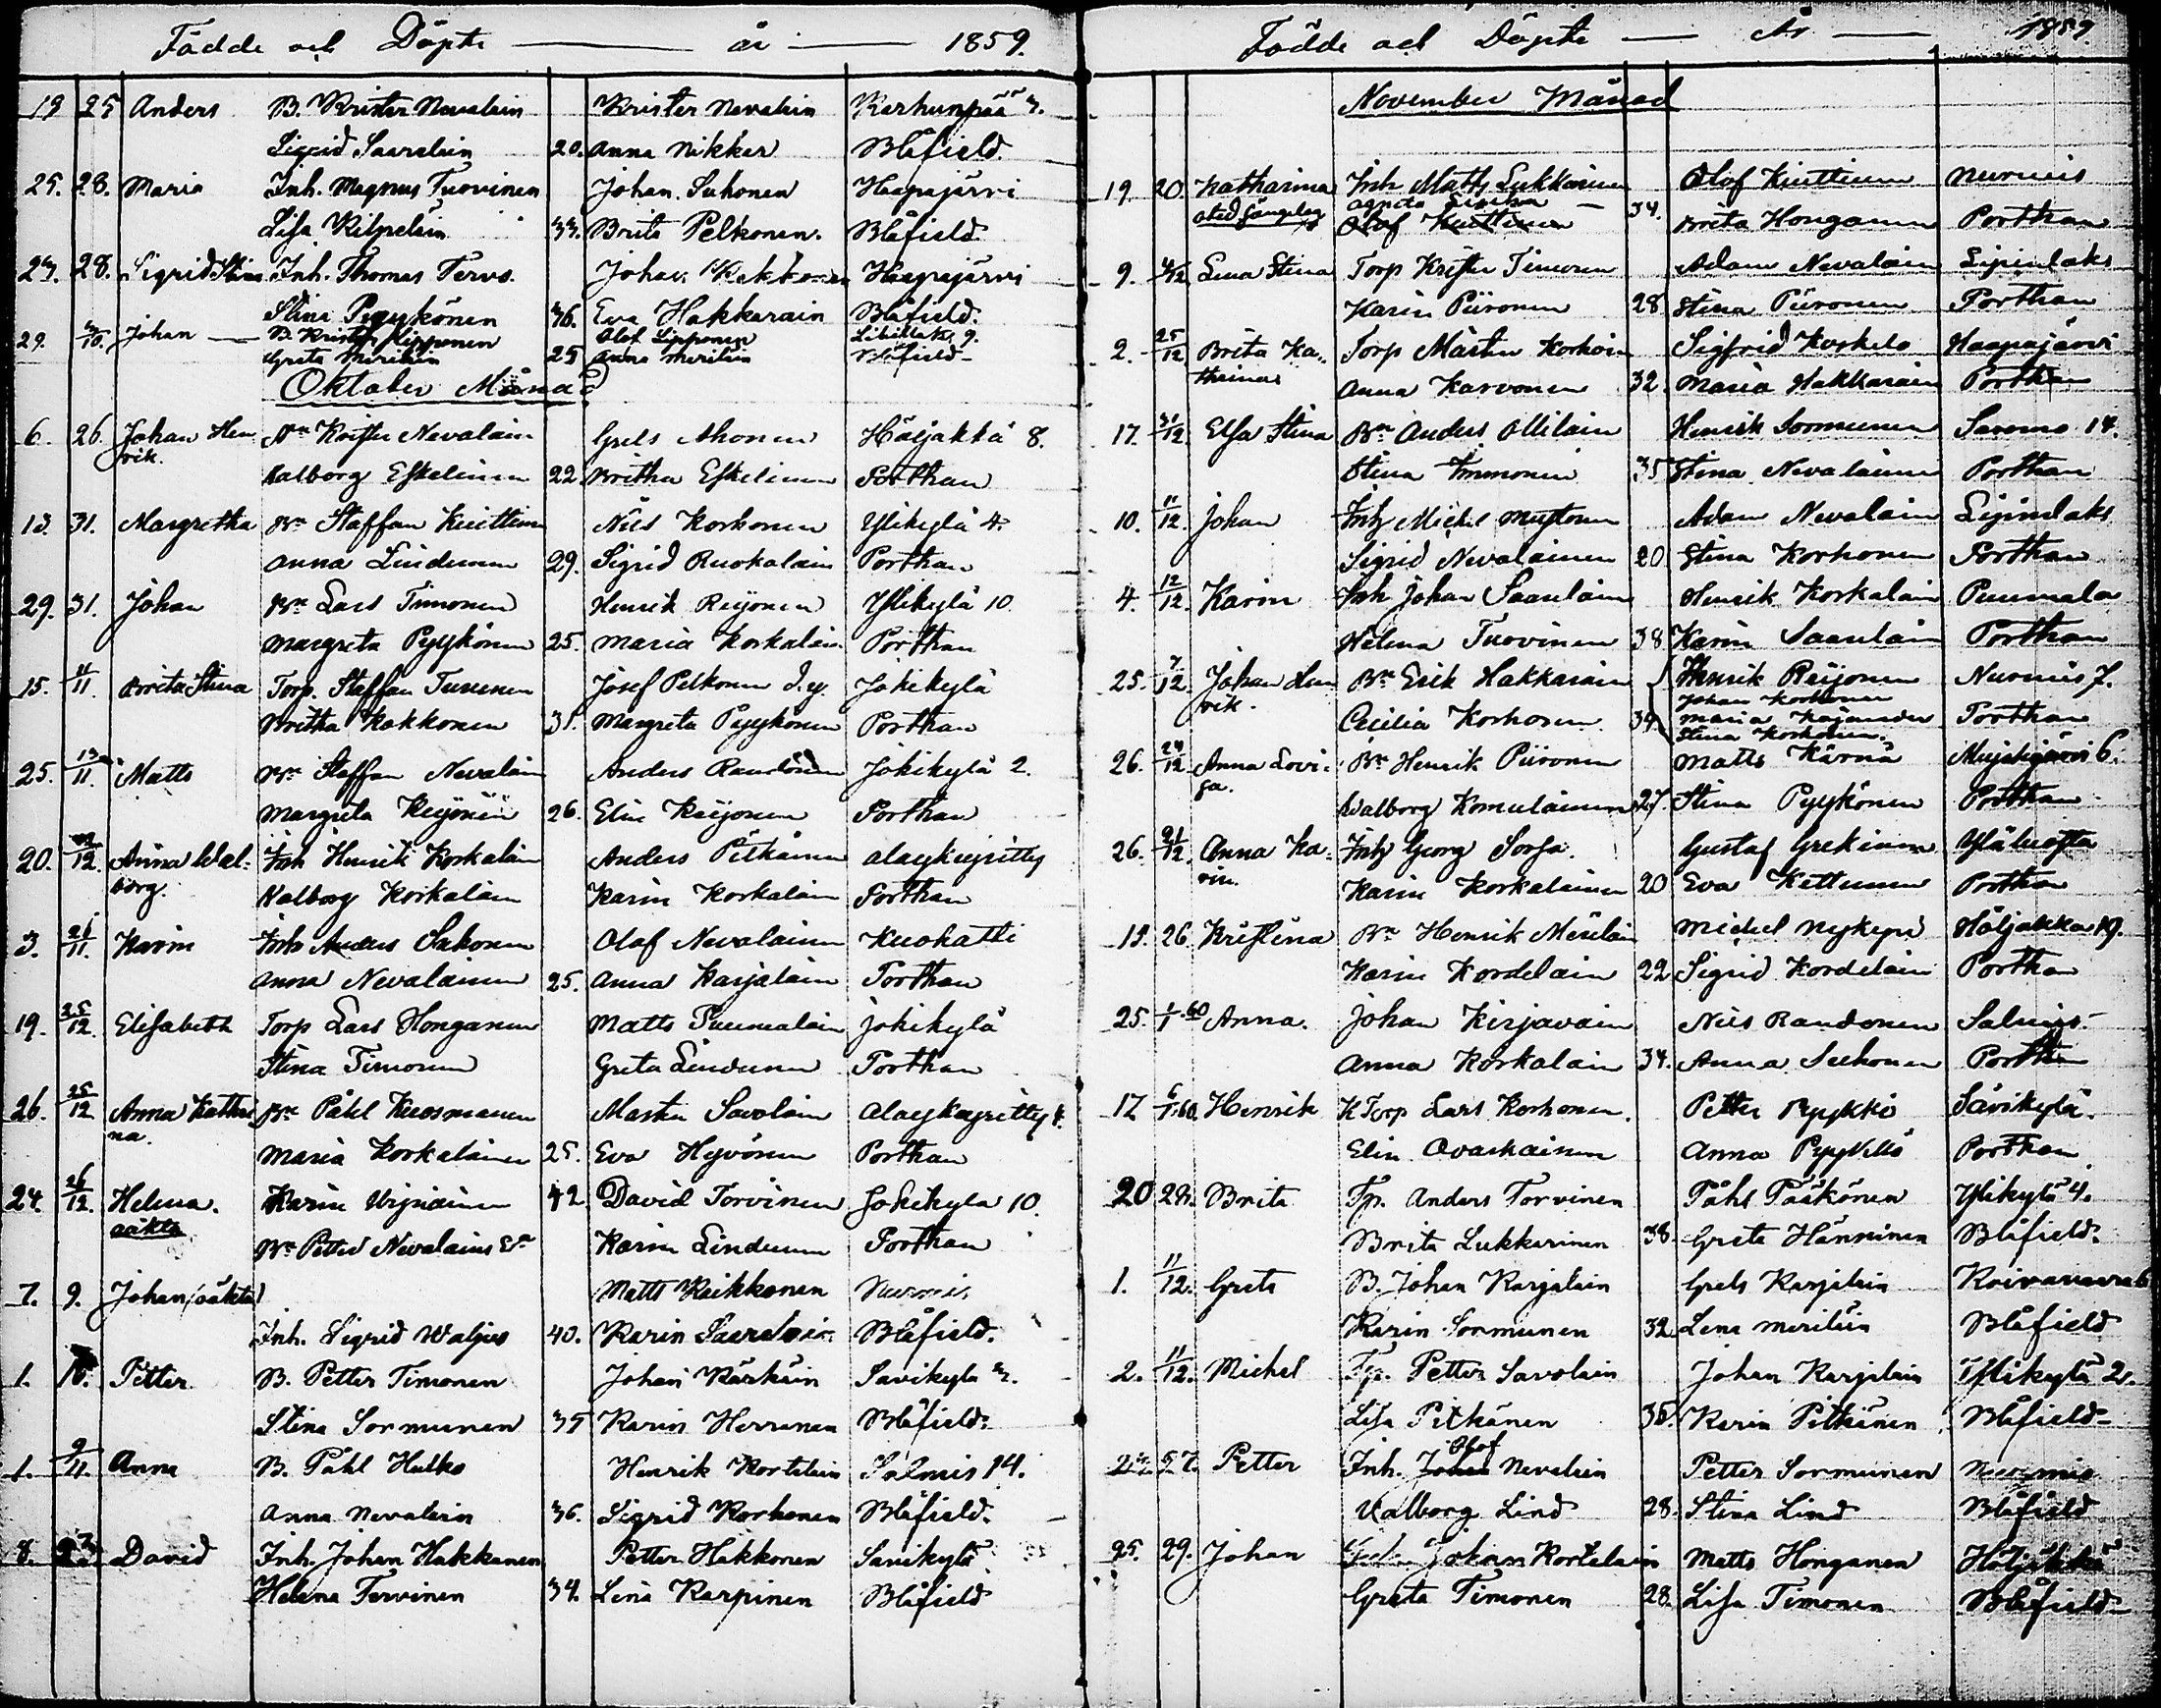 Födde och Döpte — år — 1859.
19 25 Anders B. Krister Nevalain Krister Nevalain Karhunpää 3.
Sigrid Saarelain 20. Anna Nikker Blåfield.
25. 28. Maria Inh. Magnus Tuovinen Johan Suhonen Haapajärvi
Lisa Kilpeläin 33. Brita Pelkonen. Blåfield
23. 28. Sigrid Stina Inh. Thomas Tervo. Johan Kekkonen Haapajärvi
Stina Pyykönen 36. Eva Hakkarain Blåfield.
29. 3/10. Johan — B. Krister Lipponen Olof Lipponen 9.
Greta Meriläin 25 Anna Meriläin Blåfield
Oktober Månad
6. 26. Johan Hen Bn Krister Nevalain Grels Ahonen Höljäkkä 8.
rik. Valborg Eskelinen 22 Britha Eskelinen Porthan
13. 31. Margretha Bn Staffan Kuittinen Nils Korhonen Ylikylä 4.
Anna Lindunen 29. Sigrid Ruokolain Porthan
29. 31. Johan Bn Lars Timonen Henrik Reijonen Ylikylä 10.
Margreta Pyykönen 25. Maria Korkalain Porthan
15. 11/11. Brita Stina Torp. Staffan Turunen Josef Pelkonen I.y. Jokikylä
Britha Kokkonen 31. Margreta Pyykönen Porthan
25. 13/11. Matts Bn Staffan Nevalain Anders Jokikylä 2.
Margreta Reijonen 26. Elin Reijonen Porthan
20. /12. Anna Wal- Inh Henrik Korkalain Anders Pitkänen Alaykyritty
borg. Valborg Korkalain Karin Korkalain Porthan
3. 21/11. Karin Inh Anders Sahonen Olof Nevalainen Kuohatti
Anna Nevalainen 25. Anna Karjalain Porthan
19. 25/12. Elisabeth Torp Lars Honganen Matts Puumalain Jokikylä
Stina Timonen Greta Lindunen Porthan
26. 25/12 Anna Kathri Bn Påhl Kuosmanen Mårten Savolain
na. Maria Korkalainen 25. Eva Hyvönen Porthan
24. 26/12. Helena. Karin 42 David Torvinen Jokikylä 10.
oäkta Bn Petter Nevalains Karin Lindunen Porthan
7. 9. Johan (oäkta) Matts Keikkonen Nurmis
Inh. Sigrid Waljus 40. Karin Saarelain Blåfield.
1. 10. Petter B. Petter Timonen Johan Kärkäin Savikylä 3.
Stina Sormunen 35 Karin Herranen Blåfield.
1. 9/11. Anna B. Påhl Hulko Henrik Kortelain Salmis 14.
Anna Nevalain 36. Sigrid Korhonen Blåfield.
8. David Inh. Johan Hakkanen Petter Hakkonen Savikylä
Helena Tervinen 34. Lena Karpinen Blåfield
Födde och Döpte — År — 1859.
November Månad
19. 20. Katharina Inh Matts Lukkarinen Olof Kuittinen Nurmis
Agneta — 34.
Olof Kuittinen Brita Honganen Porthan
9. 4/12 Lena Stina Torp Krister Timonen Adam Nevalain Lipinlaks
Karin Piironen 28 Stina Piironen Porthan
2. 25/12 Brita Ka- Torp Mårten Korhoin Sigfrid Koskelo Haapajärvi
tharina Anna Karvonen 32. Maria Hakkarain Porthan
17. 31/12 Elsa Stina Bn Anders Ollilain Henrik Sormunen Saramo 14.
Stina Immonen 35 Stina Nevalainen Porthan
10. 11/12. Johan Inh Michel Mustonen Adam Nevalain Lipinlaks
Sigrid Nevalainen 20 Stina Korhonen Porthan
4. 12/12. Karin Inh Johan Saarelain Henrik Korkalain Puumala
Helena Tuovinen 38 Karin Saarelain Porthan
25. 7/12. Johan Hen Bn Erik Hakkarain Henrik Reijonen Nurmis 7.
rik. Johan Korhonen
Cecilia Korhonen 34. Maria Kajander Porthan
Stina Korhonen.
26. 24/12 Anna Lovi- Bn Henrik Piironen Matts Kärnä Mujejärvi 6.
sa. Walborg Komulainen 27. Stina Pyykönen Porthan
26. 21/12 Anna Ka- Inh Georg Sorsa. Gustaf Grekinen Yläluosta
rin. Karin Korkalainen 20 Eva Kettunen Porthan
15. 26. Kristina Bn Henrik Meriläin Michel Nykyri Höljäkkä 19.
Karin Kordelain 22 Sigrid Kordelain Porthan
25. 1/1 60 Anna. Johan Kirjavain Nils Raudonen Salmis.
Anna Korkalain 34. Anna Suhonen Porthan
17 6/1.60. Henrik K Torp Lars Korhonen. Petter Pyykkö Savikylä.
Elin Ovaskainen Anna Pyykkö Porthan
20 28. Brita Tp. Anders Torvinen Påhl Pääkönen Ylikylä 4.
Brita Lukkarinen 38. Greta Hänninen Blåfield.
1. 11/12. Greta B. Johan Karjalain Grels Karjalain Koivuvaara 6
Karin Sormunen 32 Lena Meriläin Blåfield
2. 11/12. Michel Tp. Petter Savolain Johan Karjalain Ylikylä 2.
Lisa Pitkänen 36. Karin Pitkänen Blåfield
27. Petter Inh. Johan Olof Nevalain Petter Sormunen Nurmis
Valborg Lind 28. Stina Lind Blåfield
25. 29. Johan Johan Kortelain Matts Honganen Höljäkkä
Greta Timonen 28. Lisa Timonen Blåfield